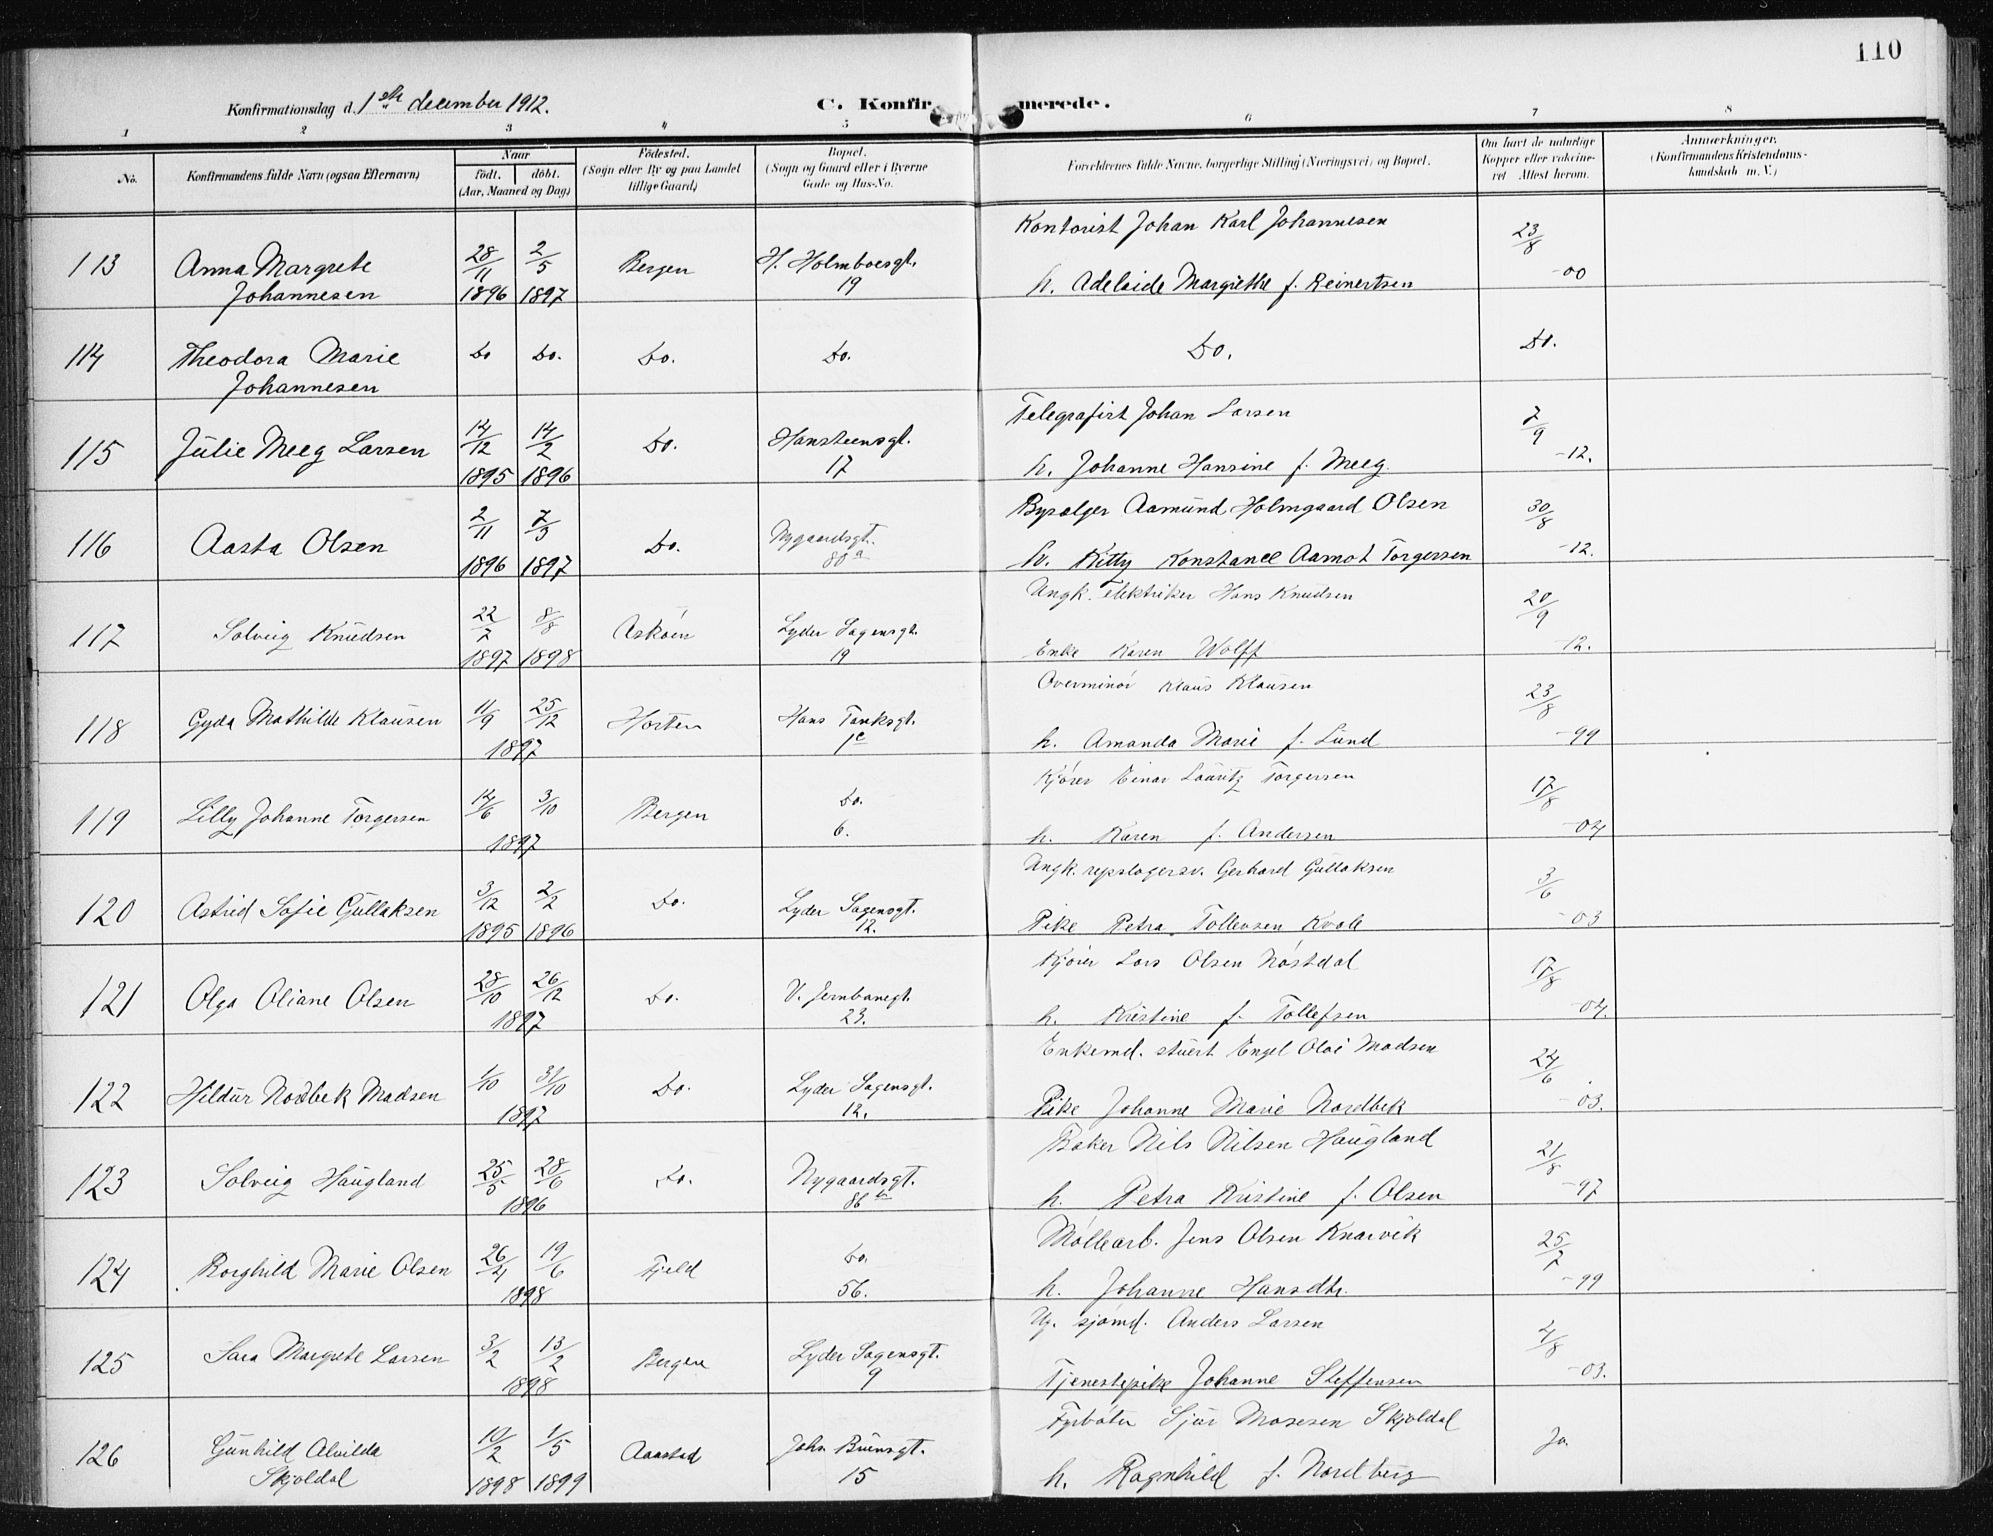 110
Konfirmationsdag d. 1ste december 1912.
C. Konfirmerede.
1 2 3 4 5 6 7 8
No.
Konfirmandens fulde Navn (ogsaa Efternavn)
Naar
födt. döbt.
(Aar, Maaned og Dag)
Födested.
(Sogn eller By og paa Landet
tillige Gaard)
Bopæl.
(Sogn og Gaard eller i Byerne
Gade og Hus-No.
Forældrenes fulde Navne, borgerlige Stilling (Næringsvei) og Bopæl.
Om havt de naturlige
Kopper eller vakcine-
ret Attest herom.
Anmærkninger.
(Konfirmandens Kristendoms-
kundskab m. V.)
113 Anna Margrete Johannesen 28/11 1896 2/5 1897 Bergen H. Holmboesgt. 19 Kontorist Johan Karl Johannesen
h. Adelaide Margrethe f. Reinertsen 23/8 -00
114 Theodora Marie Johannesen Do Do. Do. Do. Do. Do.
115 Julie Meeg Larsen 14/12 1895 14/2 1896 Do. Hansteensgt. 17 Telegrafist Johan Larsen
h. Johanne Hansine f. Meeg. 7/9 -12.
116 Aasta Olsen 2/11 1896 7/3 1897 Do. Nygaardsgt. 80a Bysælger Aamund Holmgaard Olsen
h. Kitty Konstance Aamot Torgersen 30/8 -12.
117 Solveig Knudsen 22/7 1897 8/8 1898 Askøen Lyder Sagensgt. 19 Ungk. elektriker Hans Knudsen
Enke Karen Wolff 20/9 -12.
118 Gyda Mathilde Klausen 11/9 25/12 1897 Horten Hans Tanksgt. 1c Overminør Klaus Klausen
h. Amanda Marie f. Lund 23/8 -99
119 Lilly Johanne Torgersen 14/6 3/10 1897 Bergen Do. 6. Kjører Einar Lauritz Torgersen
h. Karen f. Andersen 17/8 -04
120 Astrid Sofie Gullaksen 3/12 1895 2/2 1896 Do. Lyder Sagensgt. 12. Ungk. repslagersv. Gerhard Gullaksen
Pike Petra Tollevsen Kvale 3/6 -03
121 Olga Oliane Olsen 28/10 26/12 1897 Do. V. Jernbanegt. 23. Kjører Lars Olsen Nøstdal
h. Kristine f. Tollefsen 17/8 -04.
122 Hildur Nordbek Madsen 1/10 31/10 1897 Do. Lyder Sagensgt. 12. Enkemd. stuert Engel Olai Madsen
Pike Johanne Marie Nordbek 24/6 -03.
123 Solveig Haugland 25/5 28/6 1896 Do. Nygaardsgt. 86 Baker Nils Nilsen Haugland
h. Petra Kristine f. Olsen 21/8 -97
124 Borghild Marie Olsen 26/4 19/6 1898 Fjeld Do. 56. Møllearb. Jens Olsen Knarvik
h. Johanne Hansdtr. 25/7 -99
125 Sara Margrete Larsen 3/2 13/2 1898 Bergen Lyder Sagensgt. 9 Ug. sjømd. Anders Larsen
Tjenestepike Johanne Steffensen 4/8 -03.
126 Gunhild Alvilda Skjoldal 10/2 1898 1/5 1899 Aarstad John Buensgt. 15 Fyrbøter Sjur Mosesen Skjoldal
h. Ragnhild f. Nordberg Ja.